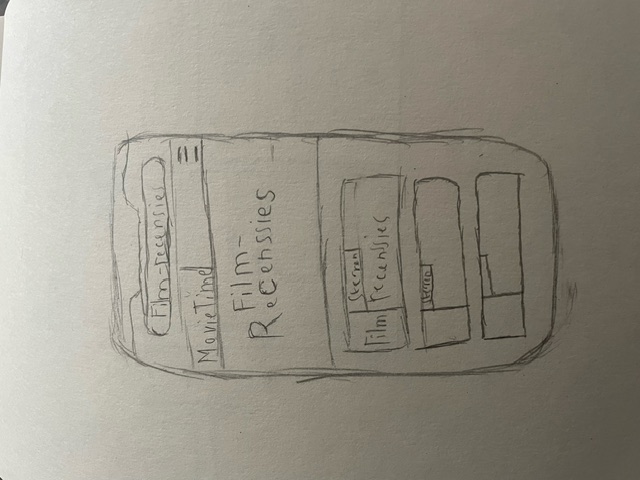 Film-recensies
MovieTime
Film-
Recenssies
Sterren
Film
recenssies
Sterren